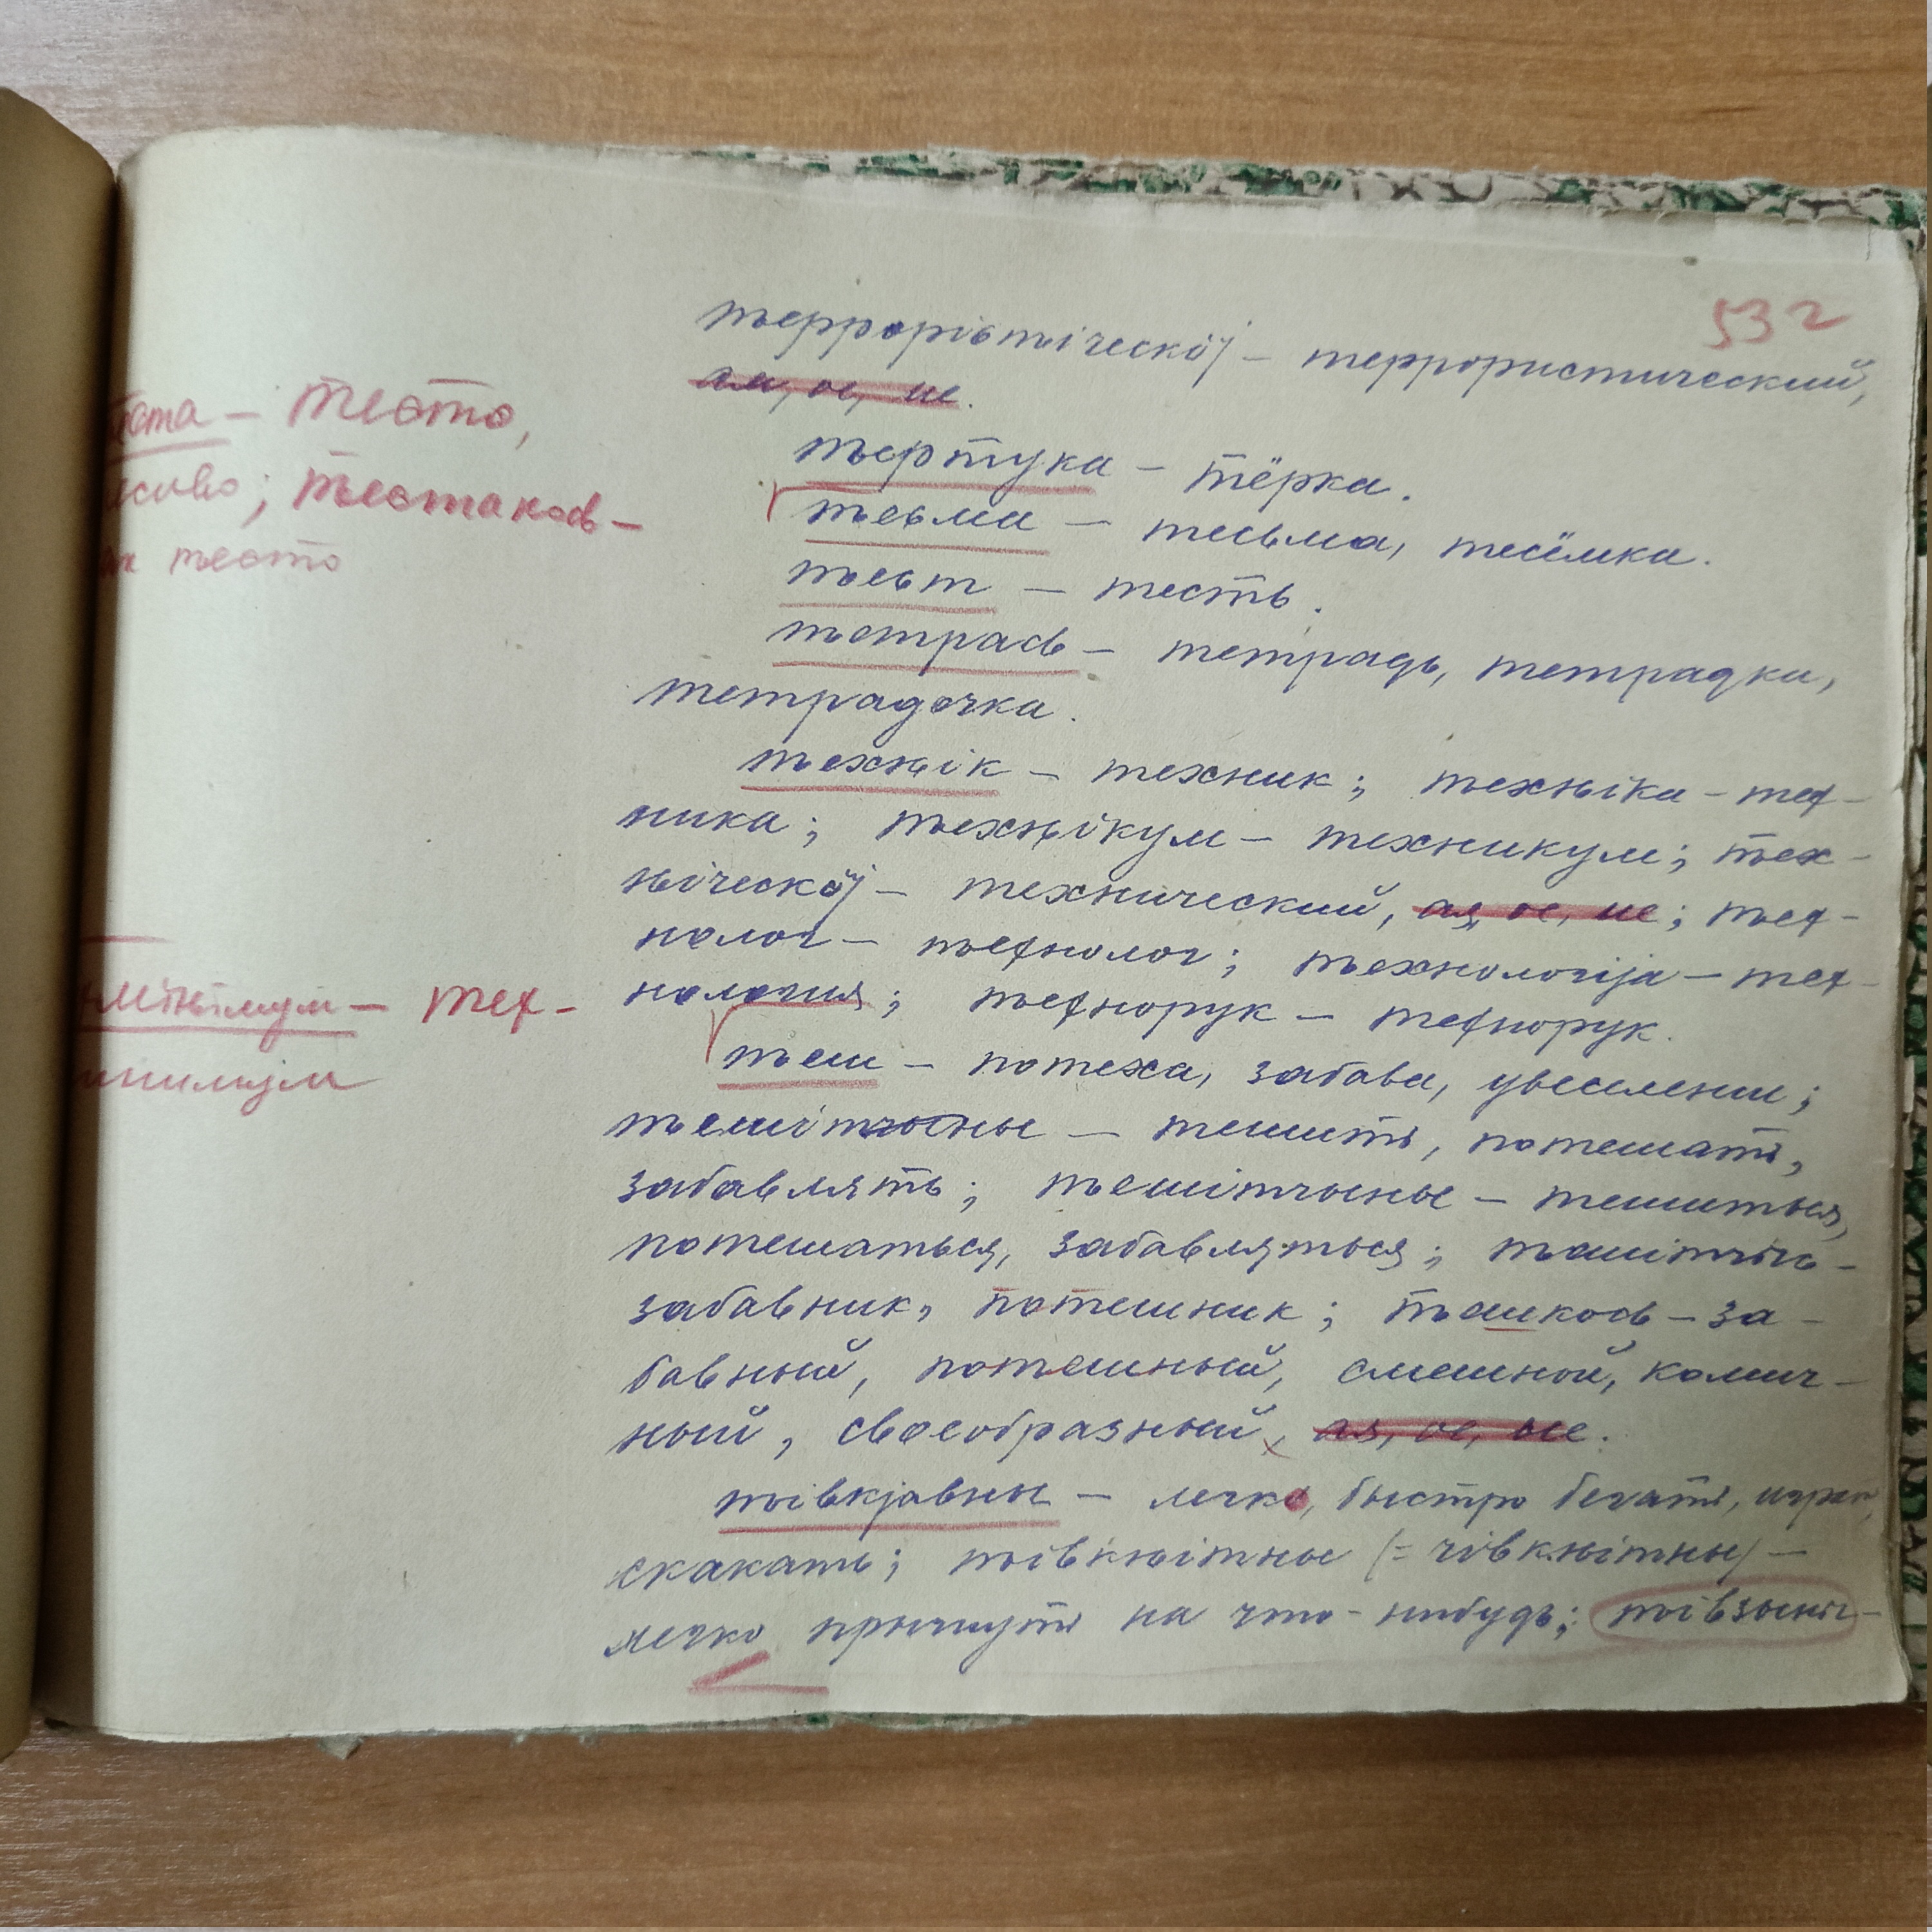 532
ԏеррорістіческӧј – террористический,
ая, ое, ие.
ԏертука – тёрка.
ԏеԍма – тесьма, тесёмка.
ԏеԍт – тесть.
ԏетраԃ – тетрадь, тетрадка,
тетрадочка.
ԏехԋік – техник; ԏехԋіка – тех-
ника; ԏехԋікум – техникум; ԏех-
ԋіческӧј – технический, ая, ое, ие; ԏех-
нолог – технолог; ԏехнологіја – тех-
нология; ԏехнорук – технорук.
ԏеш – потеха, забава, увеселение;
ԏешітны – тешить, потешать,
забавлять; ԏешітчыны – тешиться,
потешаться, забавляться; ԏешітчыԍ –
забавник, потешник; ԏешкоԃ – за-
бавный, потешный, смешной, комич-
ный, своеобразный, ая, ое, ие.
ԏівкјавны – легко, быстро бегать, играть,
скакать; ԏівкԋітны (= чівкԋітны) –
легко прыгнуть на что-нибудь; ԏівзыны –
– тесто,
; ԏестакоԃ –
тесто
– тех-